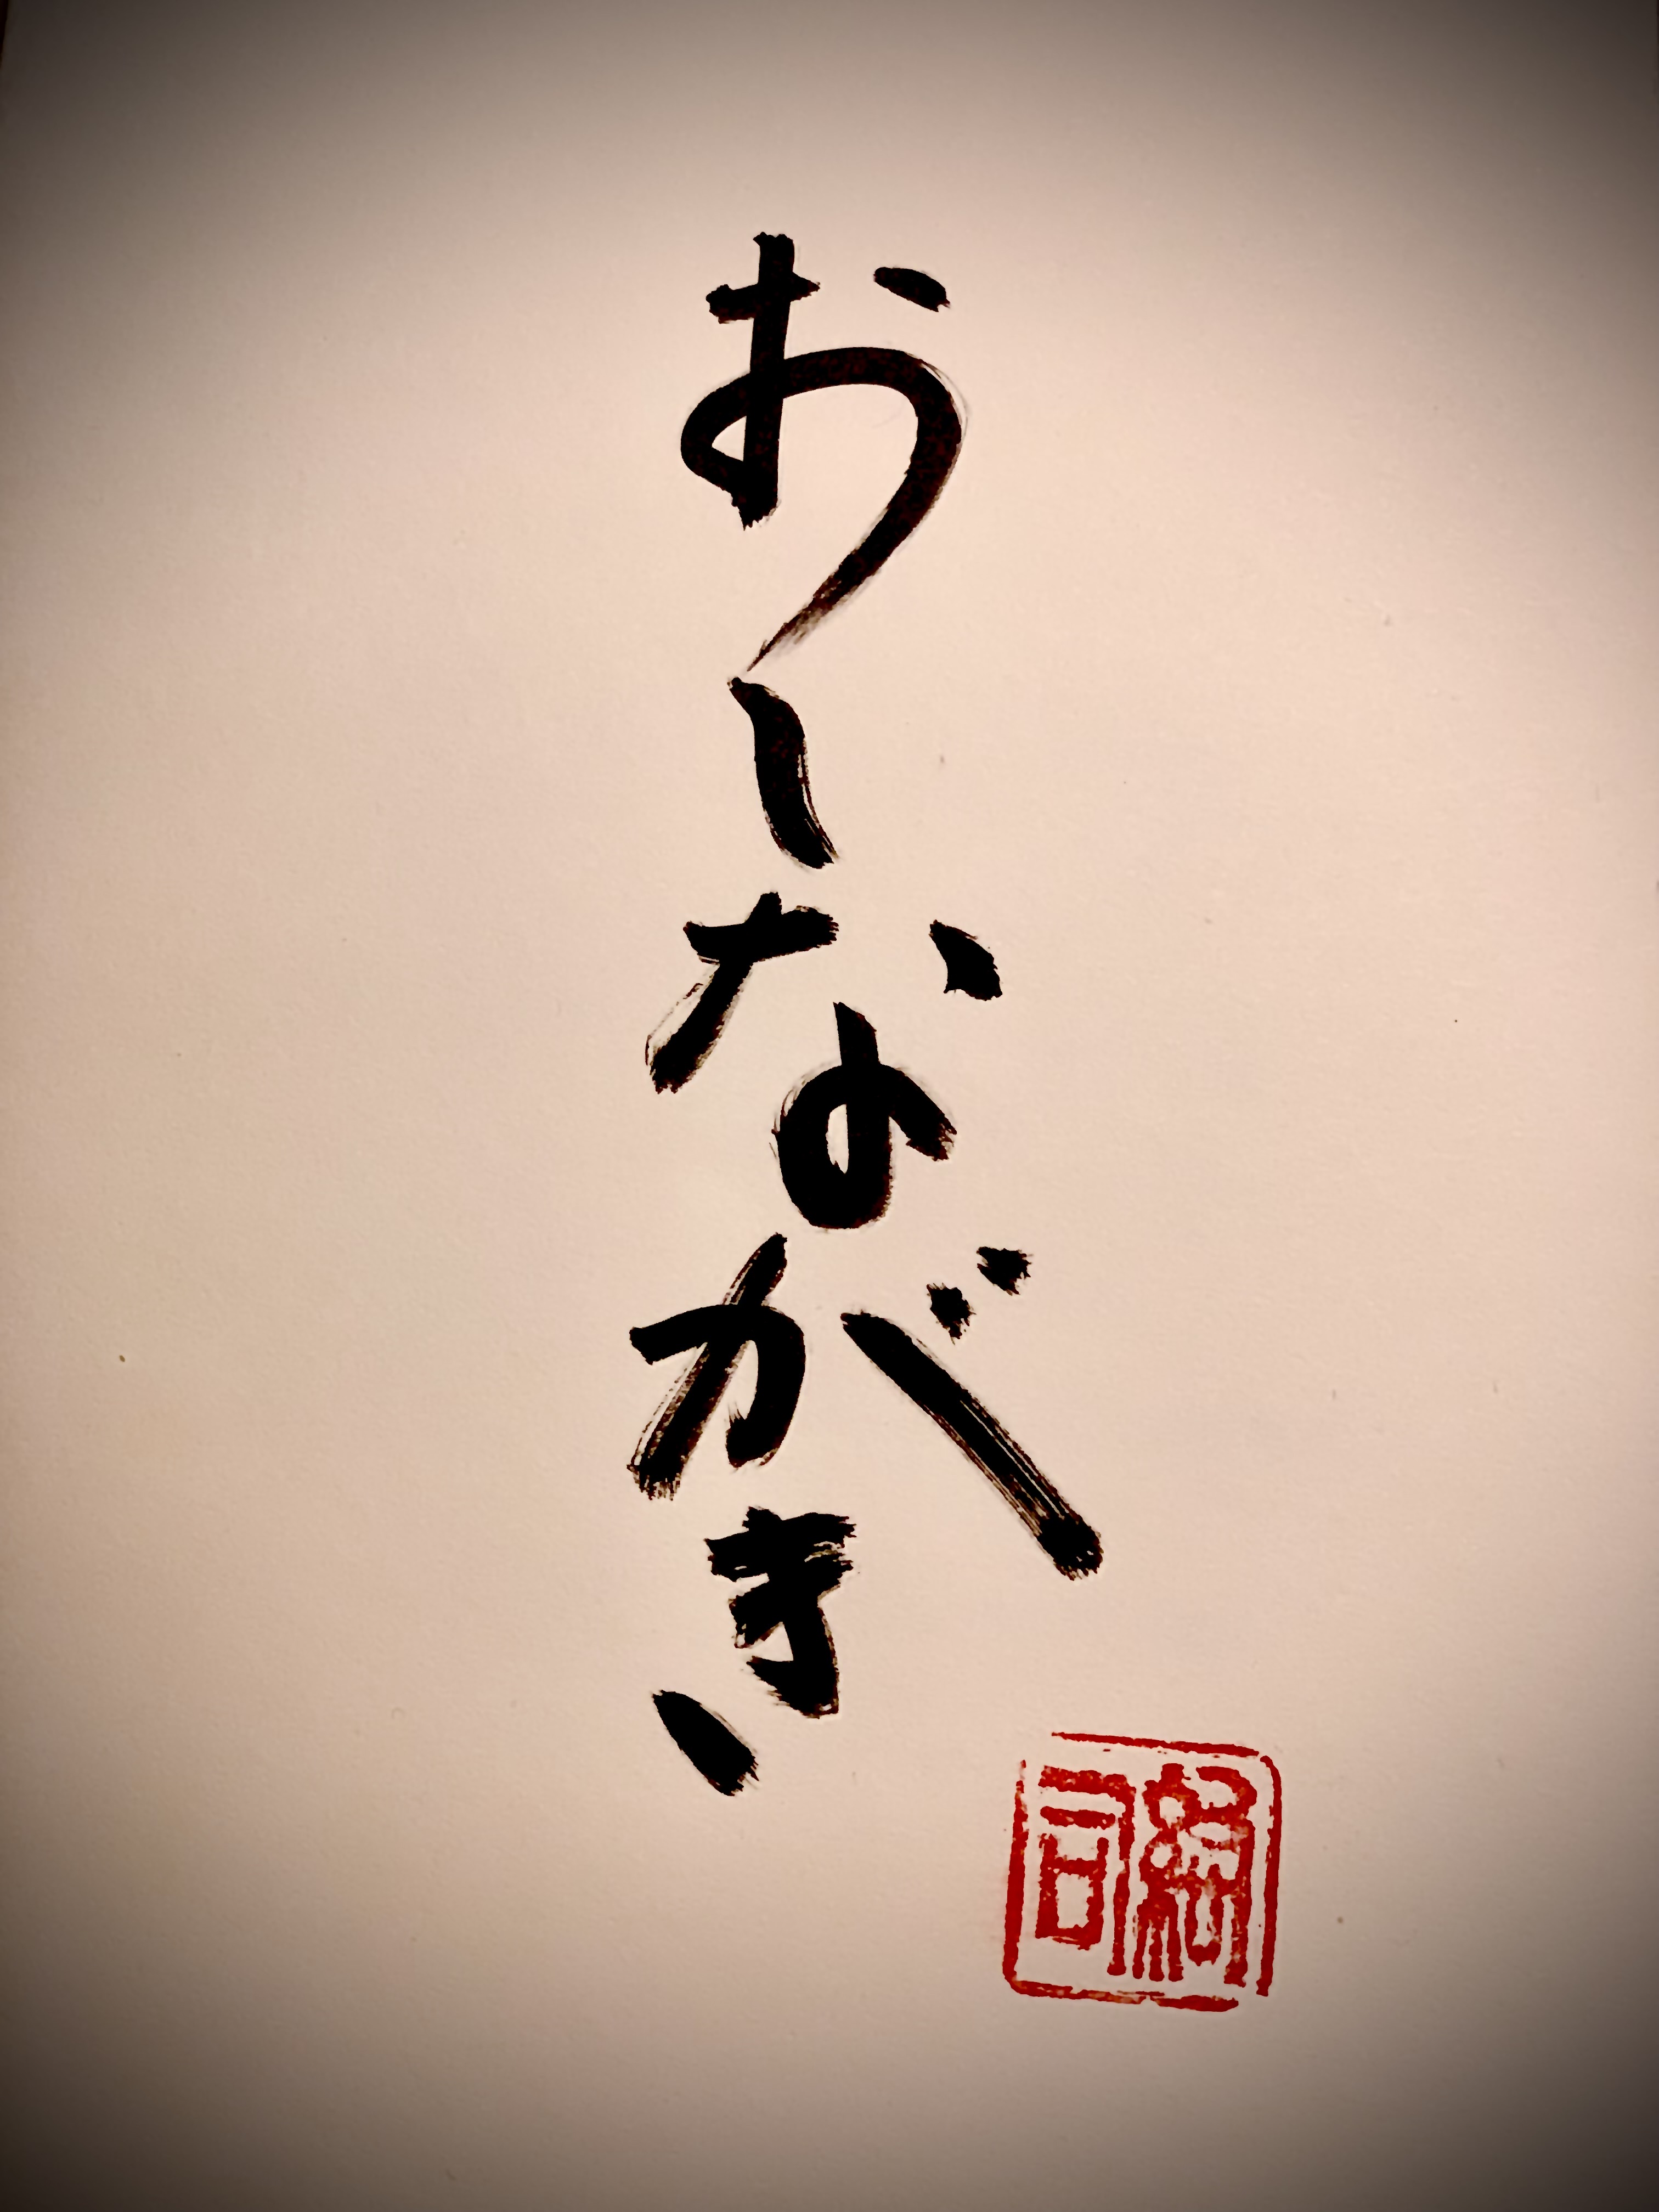 おしながき